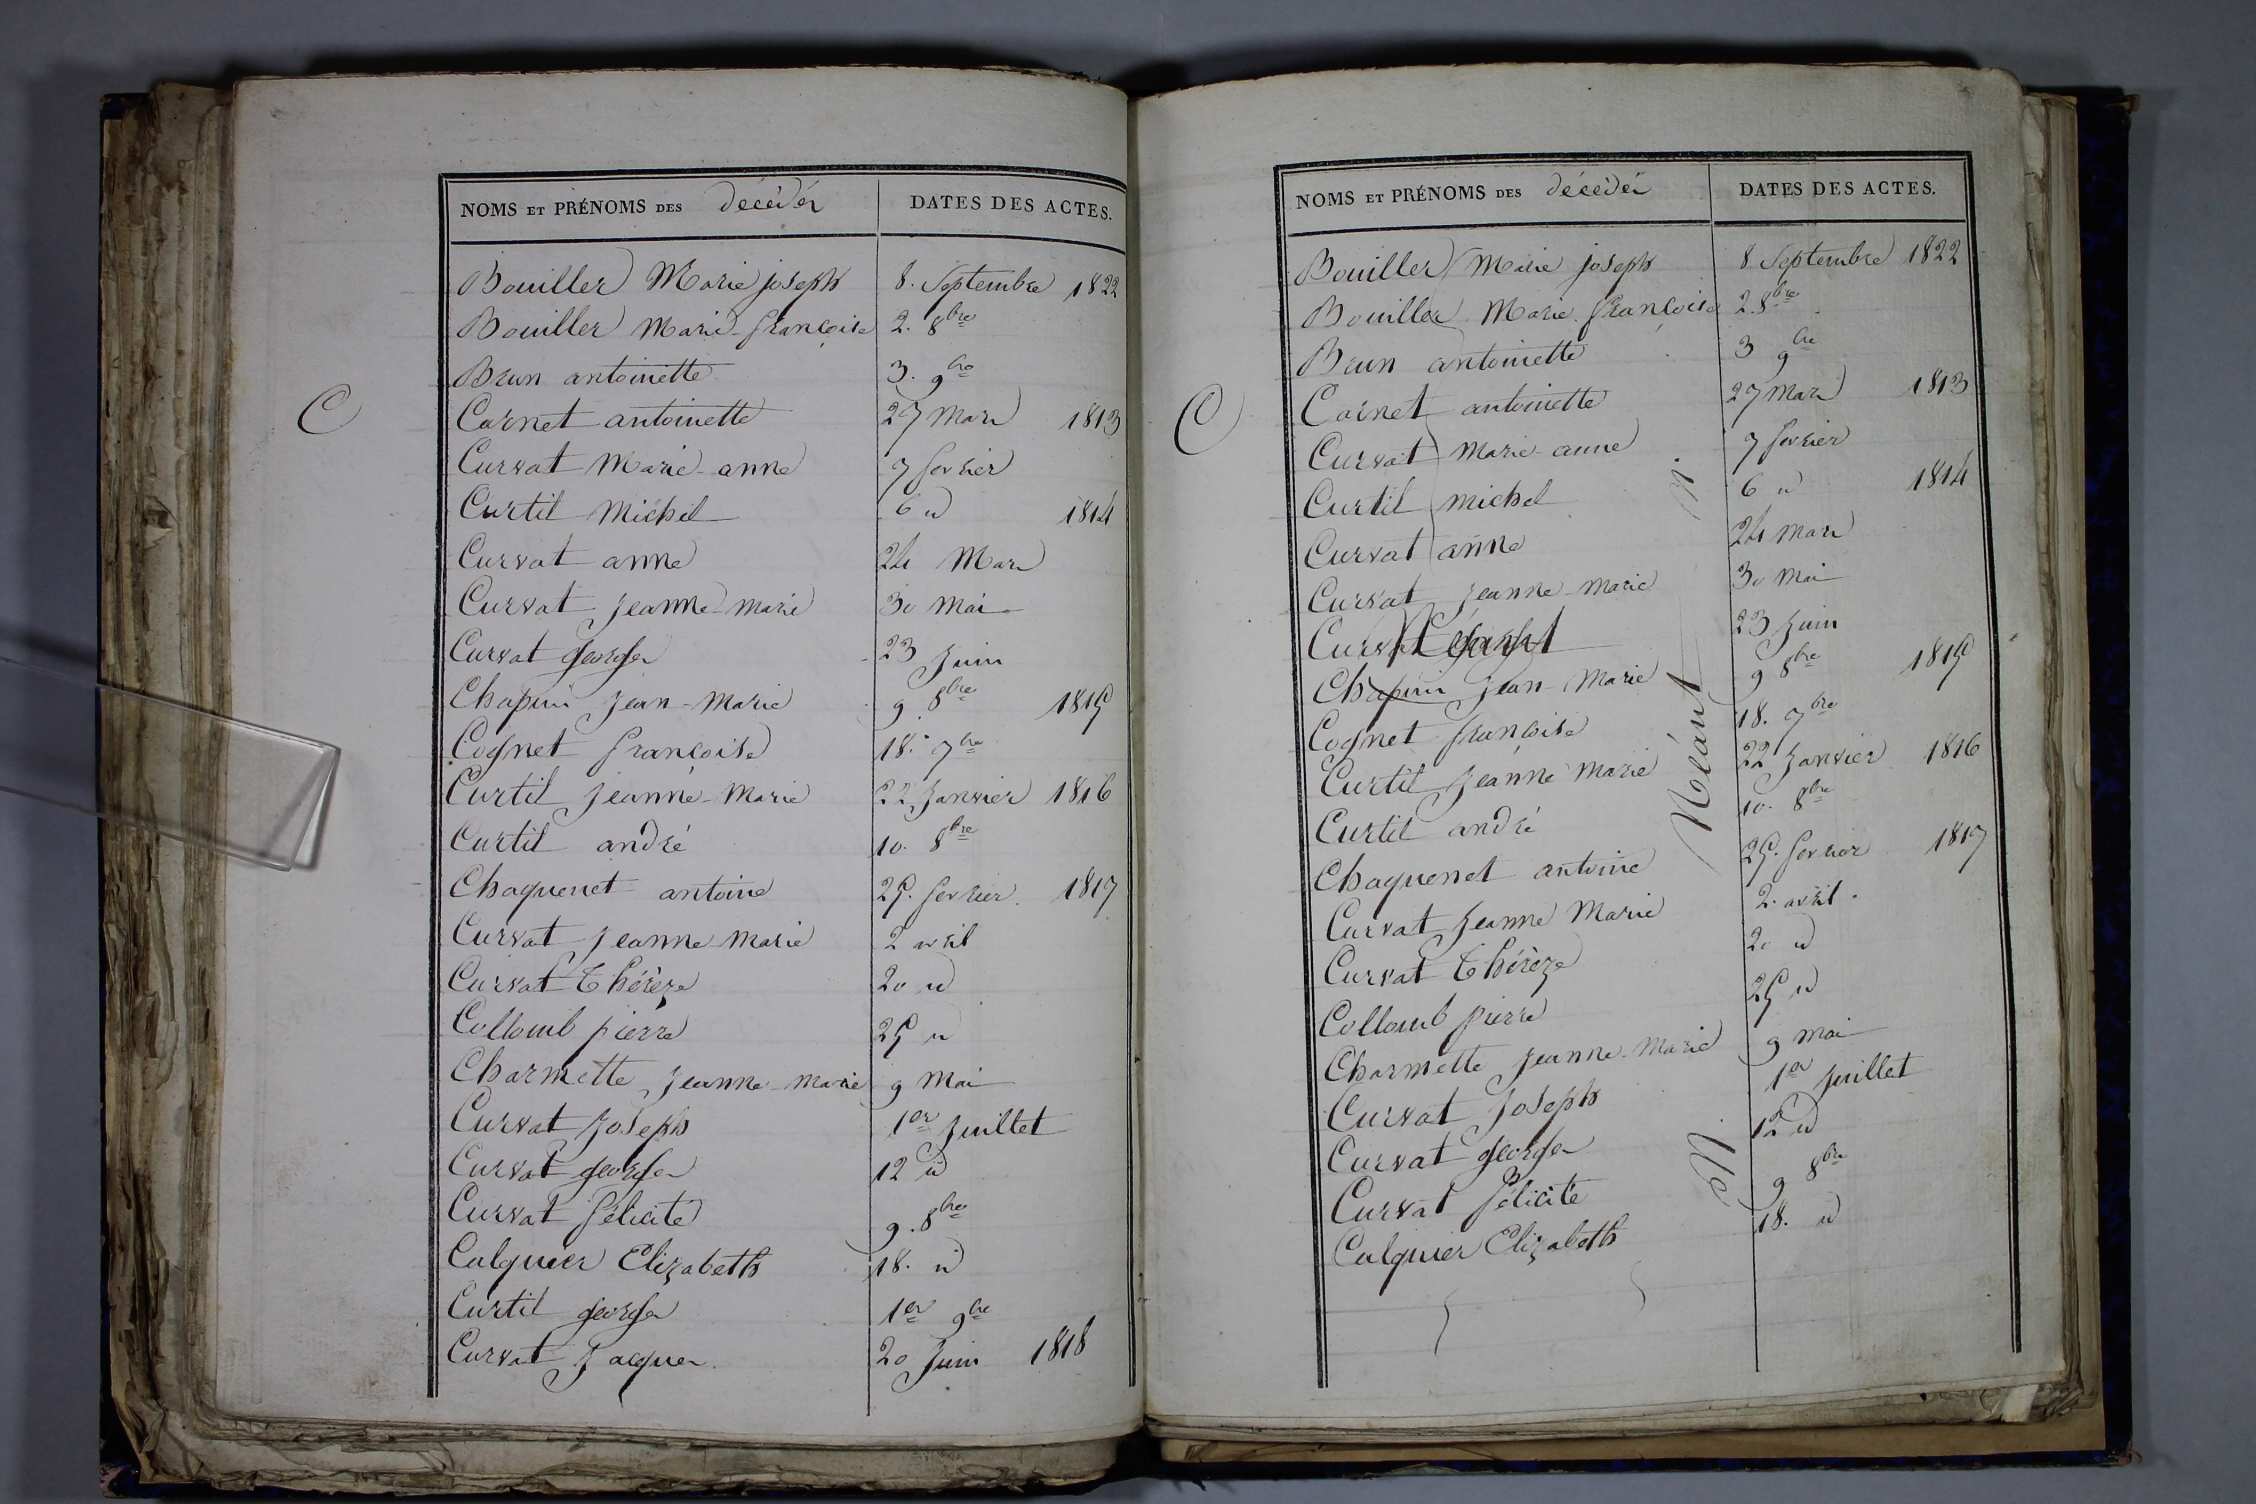 NOMS ET PRÉNOMS DES décédés DATES DES ACTES.
Bouiller Marie joseph 8. Septembre 1822
Bouiller Marie françoise 2. 8bre
Brun antoinette 3. 9bre
C
Carnet antoinette 27 Mars 1813
Curvat Marie anne 7 fevrier
Curtil Michel 6 id 1814
Curvat anne 24 Mars
Curvat jeanne marie 30 Mai
Curvat georges 23 juin
Chapuis jean-Marie 9 8bre 1815
Cognet françoise 18. 7bre
Curtil jeanne-Marie 22 janvier 1816
Curtil andré 10. 8bre
Chaquenet antoine 25. fevrier. 1817
Curvat jeanne marie 2 avril
Curvat Thérèze 20 id
Collomb pierre 25 id
Charmette jeanne-marie 9 Mai
Curvat Joseph 1er juillet
Curvat georges 12 id
Curvat félicité 9. 8bre
Calquier Elizabeth 18. id
Curtil georges 1er 9bre
Curvat Jacques 20 juin 1818
NOMS ET PRÉNOMS DES décédés DATES DES ACTES.
Bouiller Marie joseph 8 Septembre 1822
Bouiller Marie françoise 2. 8bre
Brun antoinette 3 9bre
C
Carnet antoinette 27 mars 1813
Curvat Marie-anne 7 fevrier
Curtil michel 6 id 1814
Curvat anne 24 mars
Curvat jeanne-marie 30 Mai
Curvat 23 juin
Chapuis jean-Marie 9 8bre 1815
Cognet françoise 18. 7bre
Curtil jeanne Marie 22 janvier 1816
Curtil andré 10. 8bre
Chaquenet antoine 25. fevrier 1817
Curvat jeanne Marie 2. avril.
Curvat Thérèze 20 id
Collomb pierre 25 id
Charmette jeanne-Marie 9 mai
Curvat Joseph 1er juillet
Curvat georges 12 id
Curvat félicité 9 8bre
Calquier Elizabeth 18. id
Néant